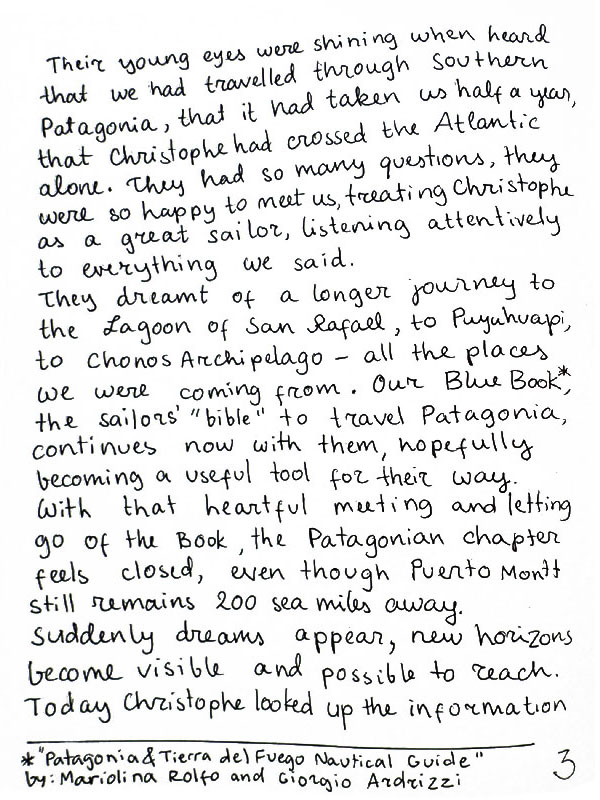 Their young eyes were shining when heard
that we had travelled through Southern
Patagonia, that it had taken us half a year,
that Christophe had crossed the Atlantic
alone. They had so many questions, they
were so happy to meet us, treating Christophe
as a great sailor, listening attentively
to everything we said.
They dreamt of a longer journey to
the Lagoon of San Rafael, to Puyuhuapi,
to Chonos Archipelago – all the places
we were coming from. Our Blue Book*,
the sailors' "bible" to travel Patagonia,
continues now with them, hopefully
becoming a useful tool for their way.
With that heartful meeting and letting
go of the Book, the Patagonian chapter
feels closed, even though Puerto Montt
still remains 200 sea miles away.
Suddenly dreams appear, new horizons
become visible and possible to reach.
Today Christophe looked up the information
* "Patagonia & Tierra del Fuego Nautical Guide"
by: Mariolina Rolfo and Giorgio Ardrizzi
3